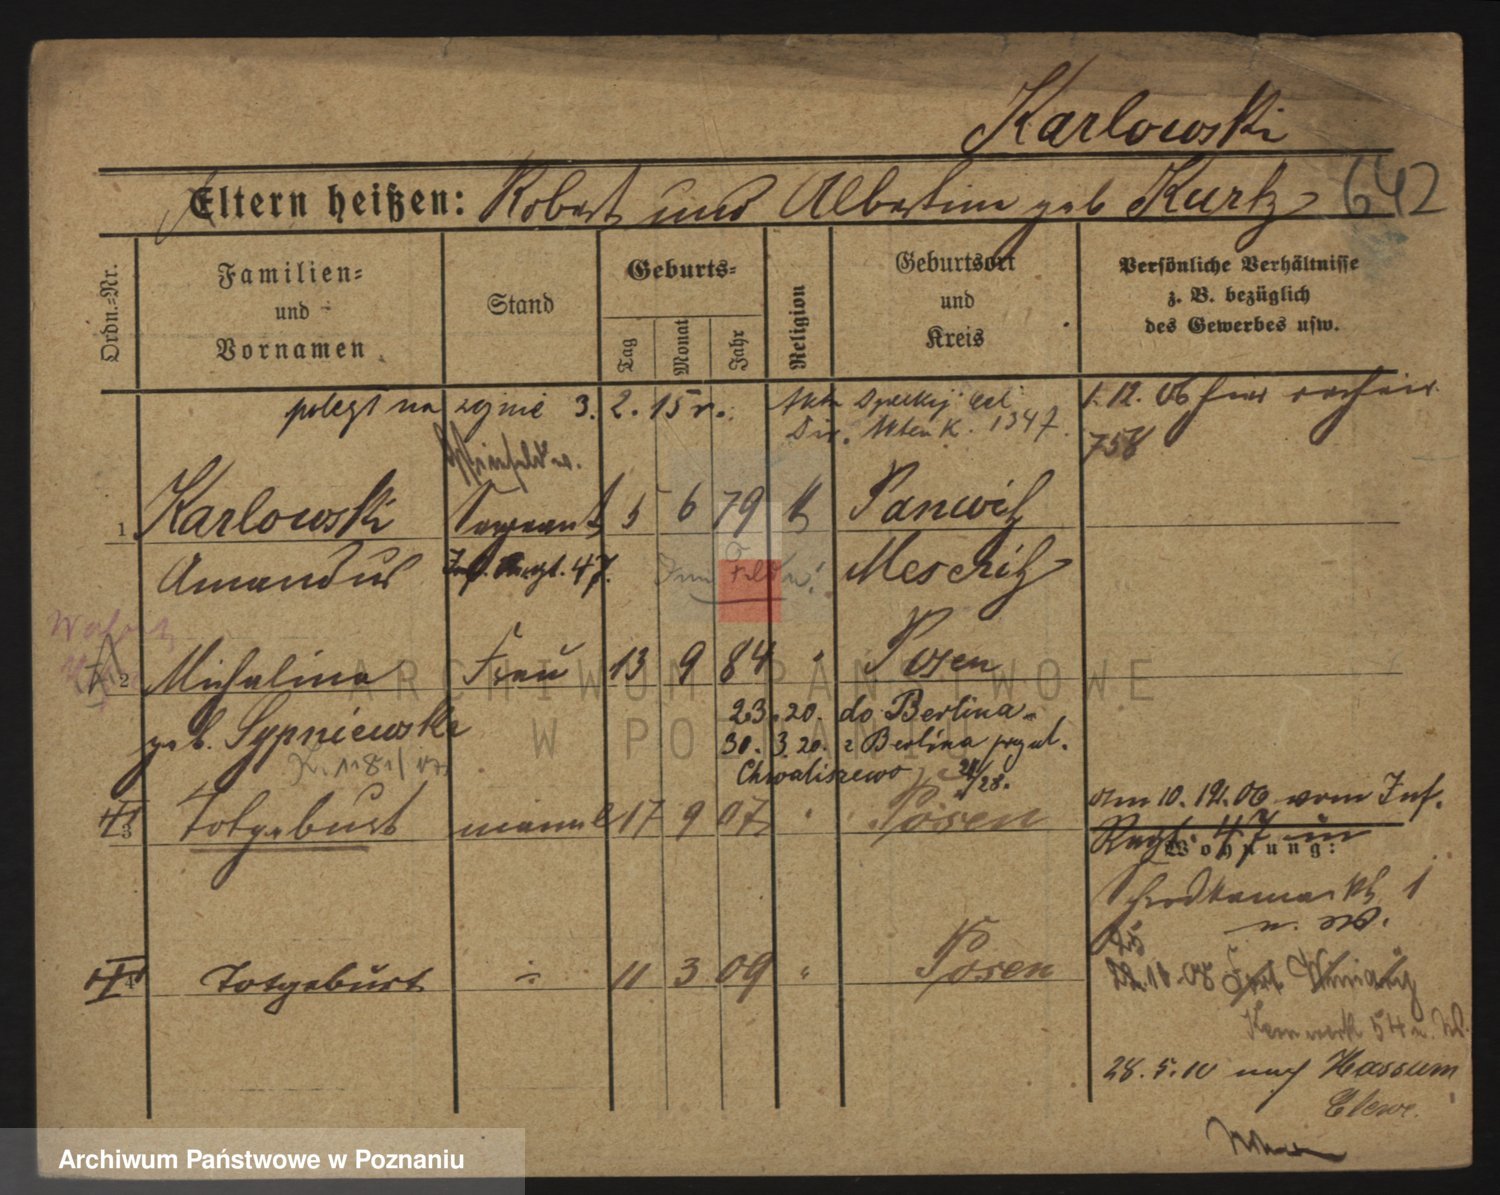 Karlowski
Eltern heißen: Robert und Albertine geb Kurtz 642
Ordn.-Nr.
Familien-
und
Vornamen
Stand
Geburts-
Tag Monat Jahr
Religion
Geburtsort
und
Kreis
Persönliche Verhältnisse
z. B. bezüglich
des Gewerbes usw.
poległ na wojnie 3. 2. 15 r.
Akta K. 1347.
1. 12. 06 hier
758
1 Karlowski Sergeant 5 6 79 k Panwitz
Amandus Inf. Regt. 47. Im Felde! Meseritz
2 Michalina Frau 13 9 84 " Posen
geb. Sypniewska
K. 1181/
23. 20. do Berlina
30. 3. 20. z Berlina
Chwaliszewo
3 Totgeburt männl 17 9 07 " Posen
am 10. 12. 06 vom Inf.
Regt. 47 in
Wohnung:
1
u. W.
25
4 Totgeburt " 11 3 09 " Posen
22. 10. 08 Fort Winiary
Kernwerk 54 u. W.
28. 5. 10 nach Hassum
Cleve.
ARCHIWUM PAŃSTWOWE
W POZNANIU
Archiwum Państwowe w Poznaniu